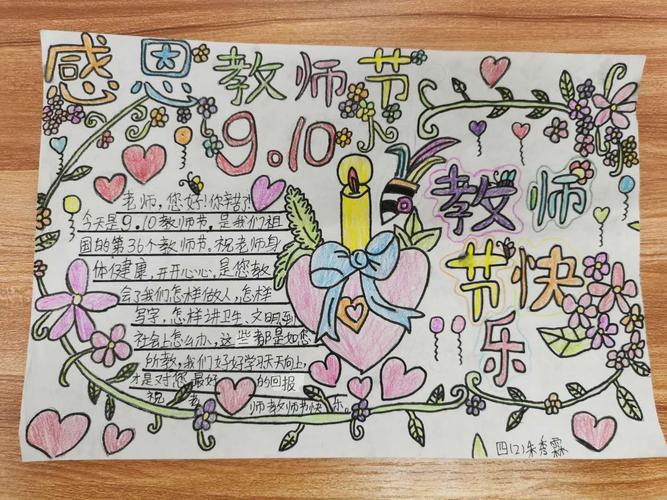 感恩教师节
9.10
教师
节快
乐
老师，您好！你辛苦了！
今天是9.10教师节，是我们祖
国的第36个教师节，祝老师身
体健康，开开心心，是您教
会了我们怎样做人，怎样
写字，怎样讲卫生、文明到
社会上怎么办，这些都是如您
所教，我们好好学习天天向上，
才是对您最好的回报
祝老师教师节快乐。
四(2)朱秀霖